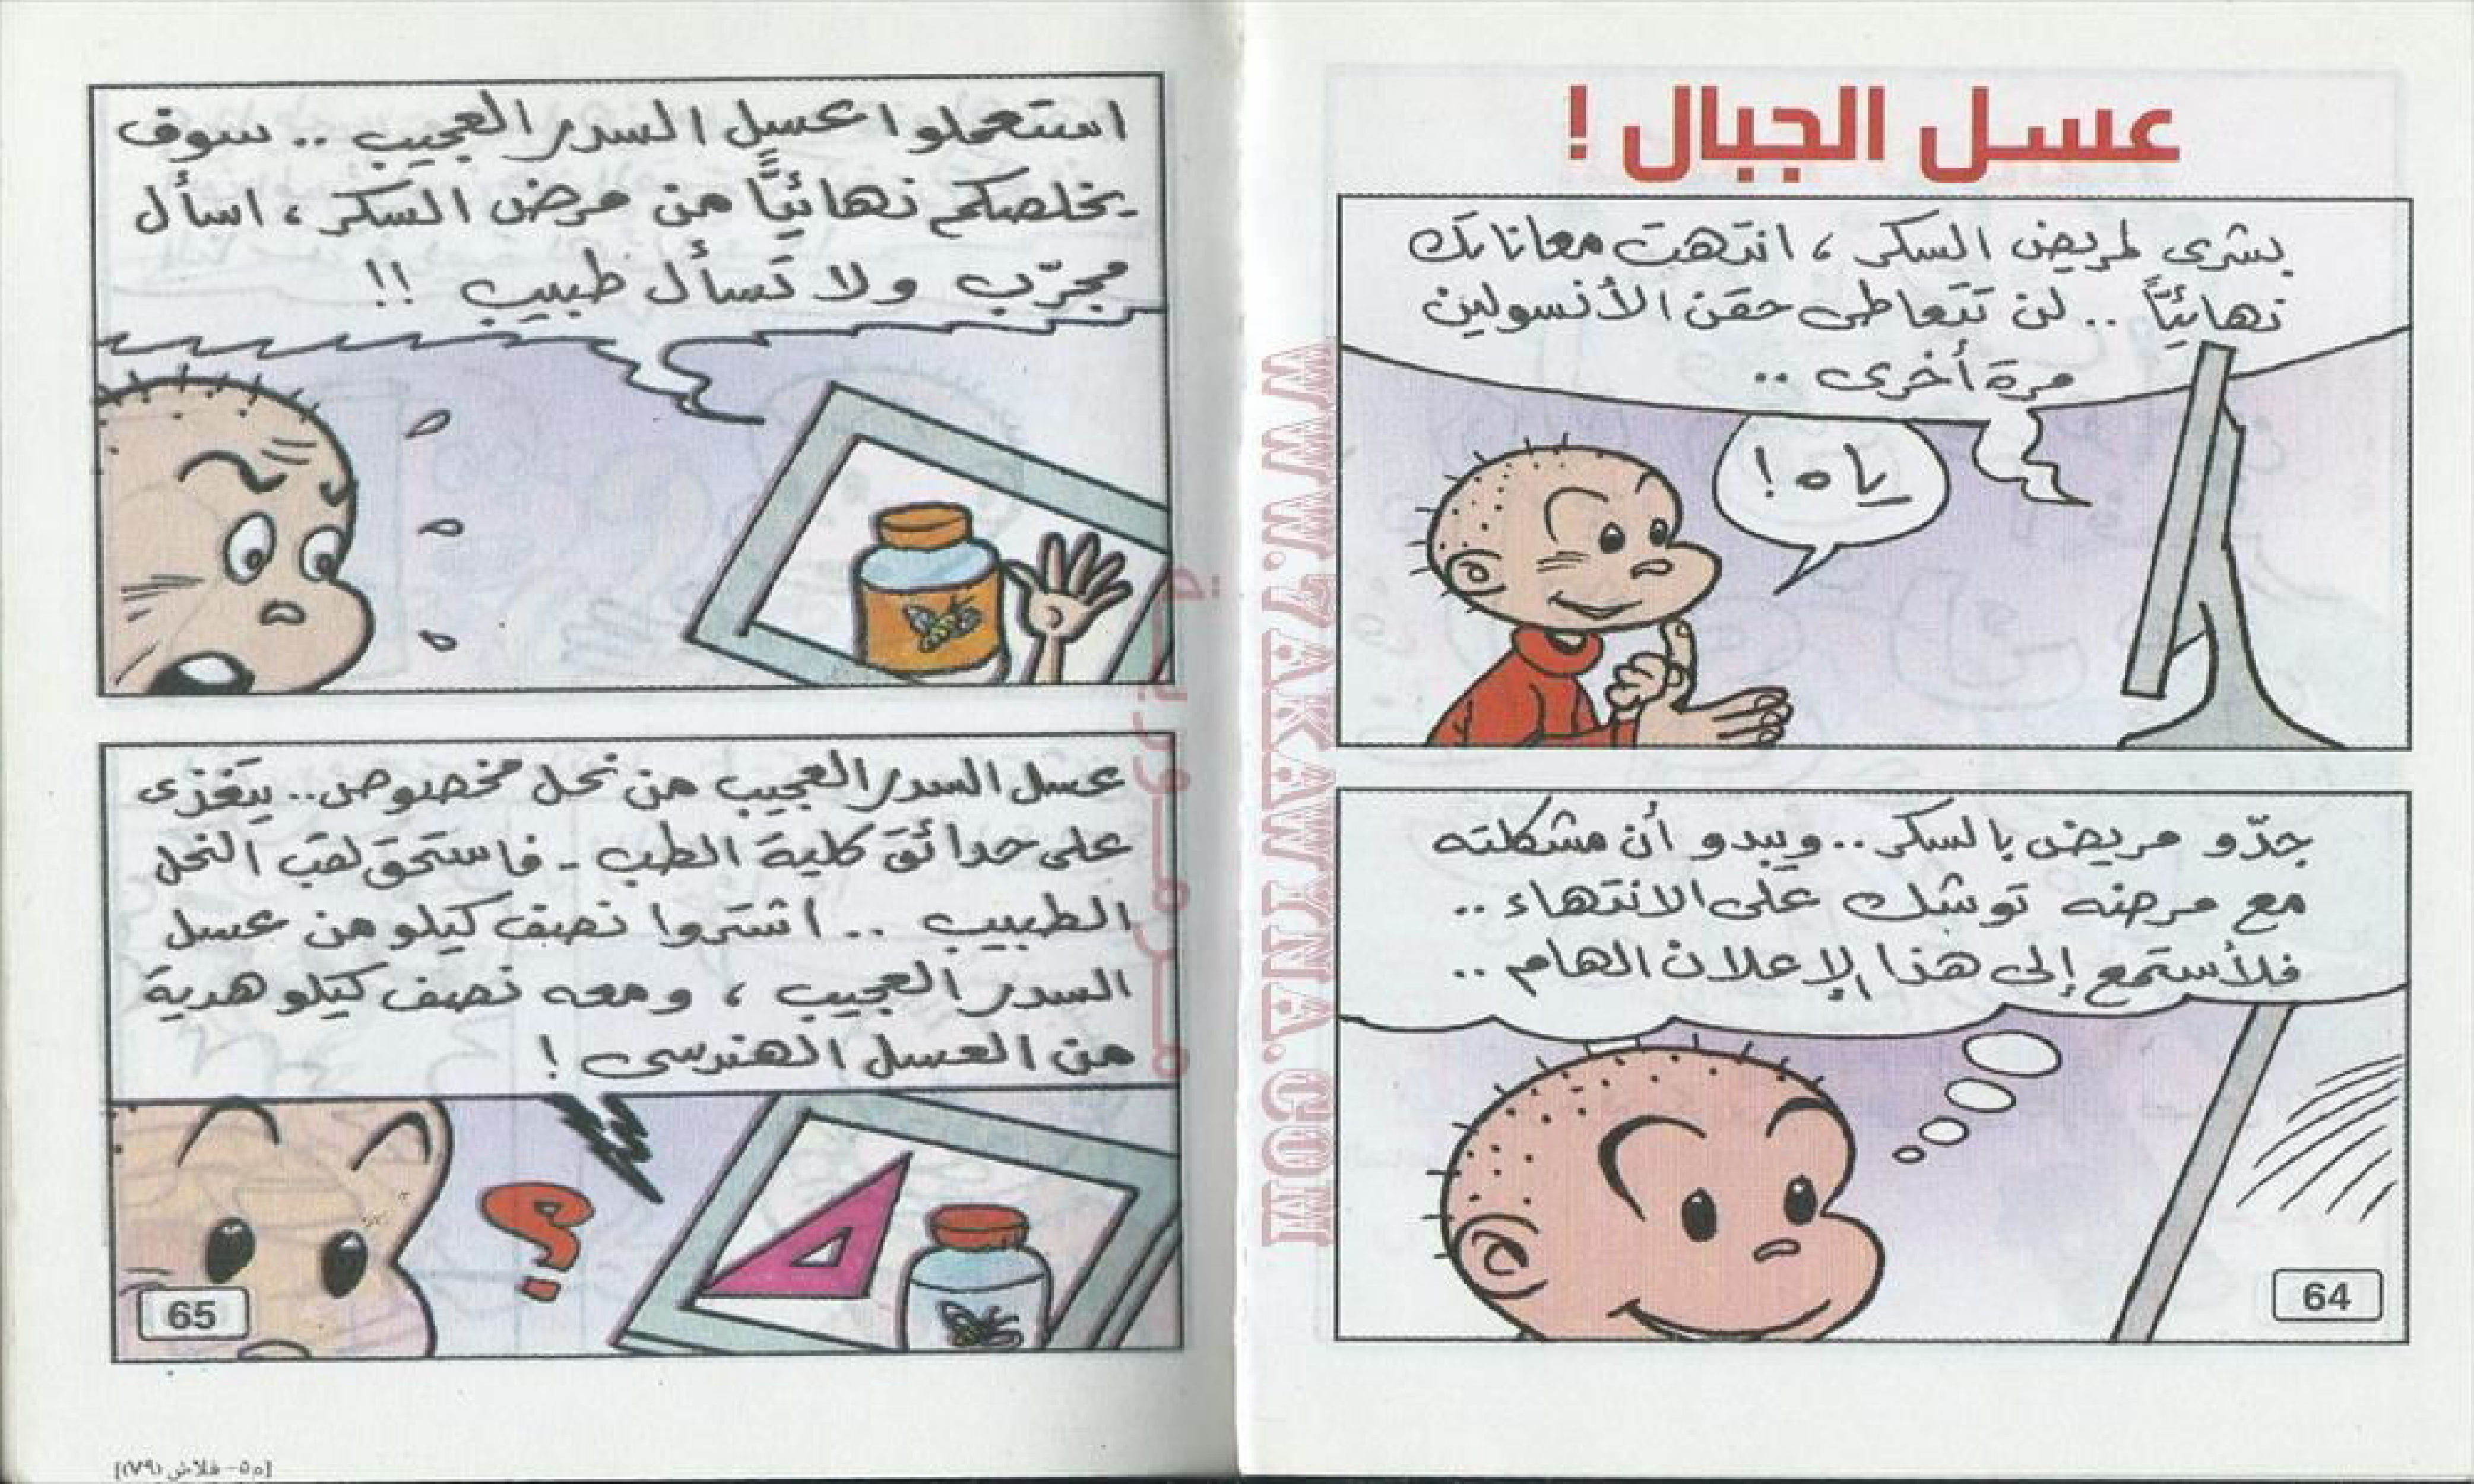 عسل الجبال !
بشرى لمريض السكر ، انتهت معاناتك
نهائيًّا .. لن تتعاطى حقن الأنسولين
مرة أخرى ..
ياه !
جدّو مريض بالسكر .. ويبدو أن مشكلته
مع مرضه توشك على الانتهاء ..
فلأستمع إلى هذا الإعلان الهام ..
64
استعملوا عسل السدر العجيب .. سوف
يخلصكم نهائيًّا من مرض السكر ، اسأل
مجرّب ولا تسأل طبيب !!
عسل السدر العجيب من نحل مخصوص .. يتغذى
على حدائق كلية الطب - فاستحق لقب النحل
الطبيب .. اشتروا نصف كيلو من عسل
السدر العجيب ، ومعه نصف كيلو هدية
من العسل الهندسى !
؟
65
[م٥ - فلاش (٧٩)]